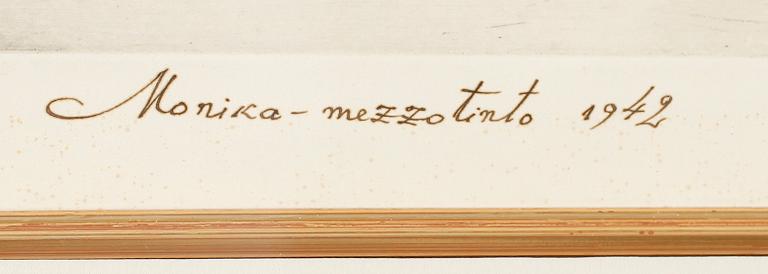 Monika - mezzotinto 1942